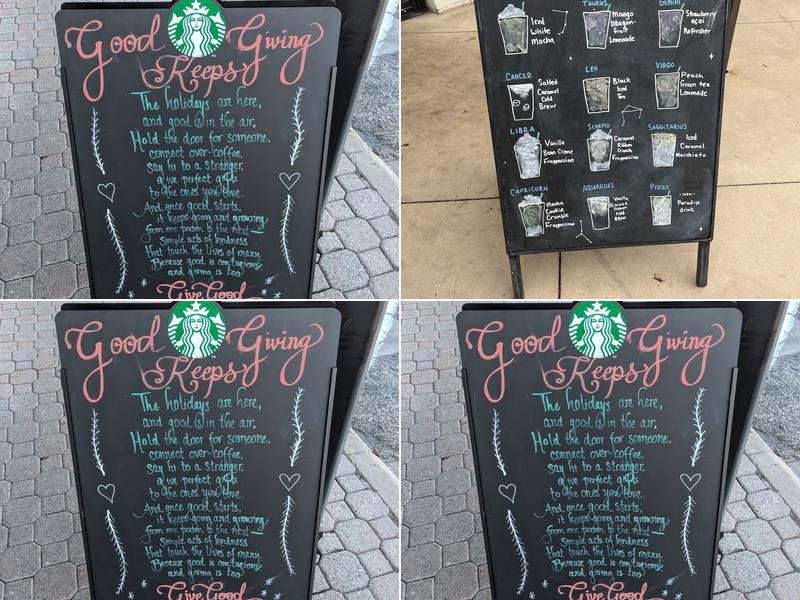 Good Giving
Keeps
The holidays are here,
and good is in the air.
Hold the door for someone,
connect over coffee,
say hi to a stranger,
give perfect gifts
to the ones you love.
And once good starts,
it keeps going and growing
from one person to the next
Simple acts of kindness
that touch the lives of many.
Because good is contagious
and giving is too
Give Good
TAURUS
GEMINI
Iced
White
Mocha
Mango
Dragon-
fruit
Lemonade
Strawberry
açaí
Refresher
CANCER
LEO
VIRGO
Salted
Caramel
Cold
Brew
Black
Iced
Tea
Peach
Green tea
Lemonade
LIBRA
SCORPIO
SAGGITARIUS
Vanilla
Bean Creme
Frappuccino
Caramel
Ribbon
Crunch
Frappuccino
Iced
Caramel
Macchiato
CAPRICORN
AQUARIUS
PISCES
Mocha
Cookie
Crumble
Frappuccino
Vanilla
Sweet
Cream
Cold
Brew
-New-
Paradise
drink
Good Giving
Keeps
The holidays are here,
and good is in the air.
Hold the door for someone,
connect over coffee,
say hi to a stranger,
give perfect gifts
to the ones you love.
And once good starts,
it keeps going and growing
from one person to the next
Simple acts of kindness
that touch the lives of many.
Because good is contagious
and giving is too
Give Good
Good Giving
Keeps
The holidays are here,
and good is in the air.
Hold the door for someone,
connect over coffee,
say hi to a stranger,
give perfect gifts
to the ones you love.
And once good starts,
it keeps going and growing
from one person to the next
Simple acts of kindness
that touch the lives of many.
Because good is contagious
and giving is too
Give Good